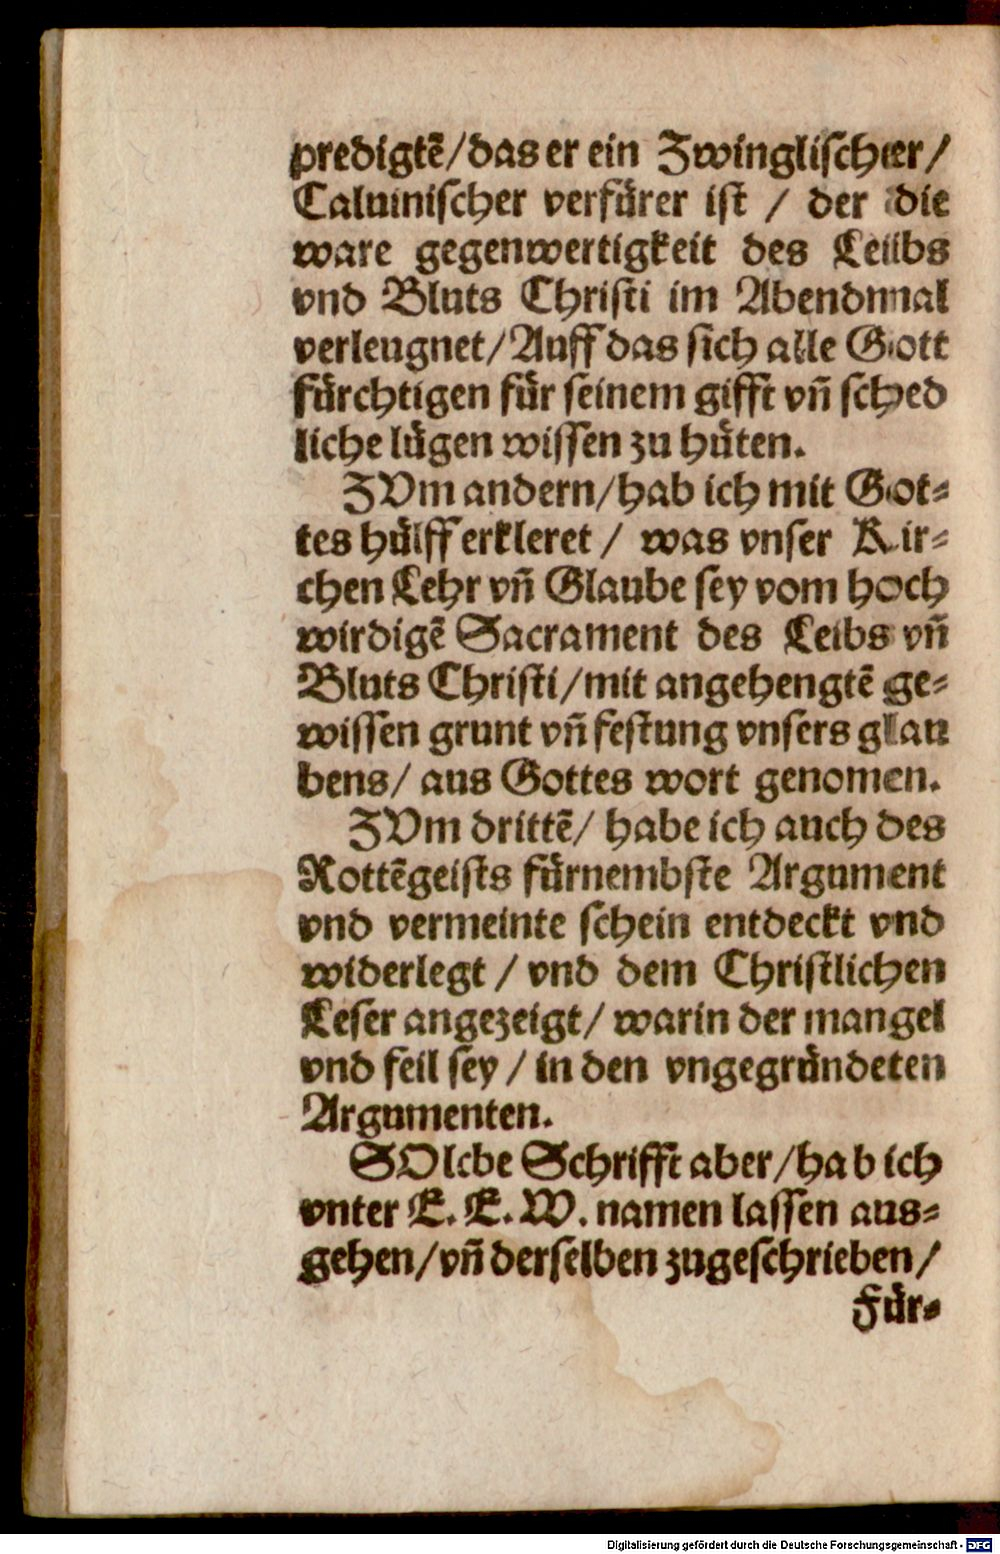 predigtẽ/das er ein Zwinglischer/
Caluinischer verfürer ist / der die
ware gegenwertigkeit des Leibs
vnd Bluts Christi im Abendmal
verleugnet/Auff das sich alle Gott
fürchtigen für seinem gifft vñ sched
liche lügen wissen zu hüten.
ZVm andern/hab ich mit Got-
tes hülff erkleret / was vnser Kir-
chen Lehr vñ Glaube sey vom hoch
wirdigẽ Sacrament des Leibs vñ
Bluts Christi/mit angehengtẽ ge-
wissen grunt vñ festung vnsers glau
bens/ aus Gottes wort genomen.
ZVm drittẽ/ habe ich auch des
Rottẽgeists fürnembste Argument
vnd vermeinte schein entdeckt vnd
widerlegt / vnd dem Christlichen
Leser angezeigt/ warin der mangel
vnd feil sey / in den vngegründeten
Argumenten.
SOlche Schrifft aber/hab ich
vnter E. E. W. namen lassen aus-
gehen/vñ derselben zugeschrieben/
Für-
Digitalisierung gefördert durch die Deutsche Forschungsgemeinschaft - DFG